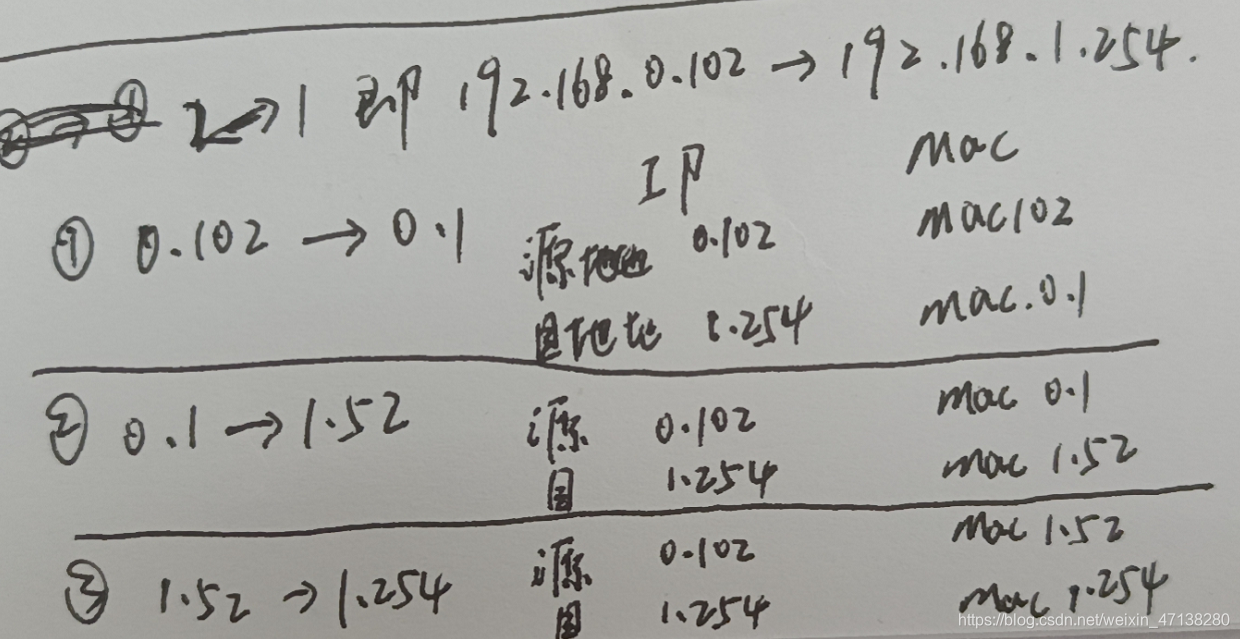 2→1 即 192.168.0.102 → 192.168.1.254.
IP mac
① 0.102 → 0.1 源地址 0.102 mac102
目地地 1.254 mac.0.1
② 0.1 → 1.52 源 0.102 mac 0.1
目 1.254 mac 1.52
③ 1.52 → 1.254 源 0.102 mac 1.52
目 1.254 mac 1.254
https://blog.csdn.net/weixin_47138280